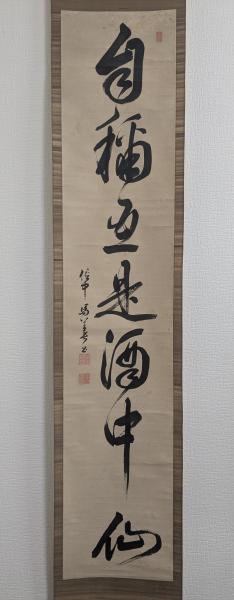 自稱臣是酒中仙